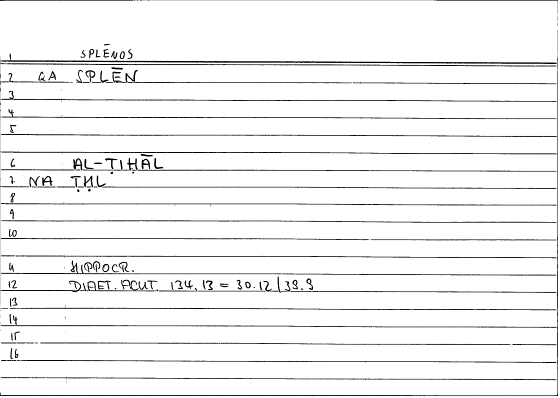 1 SPLĒNOS
2 QA SPLĒN
3
4
5
6 AL-ṬIḤĀL
7 NA ṬḤL
8
9
10
11 HIPPOCR.
12 DIAET. ACUT. 134.13 = 30.12 | 39.9
13
14
15
16